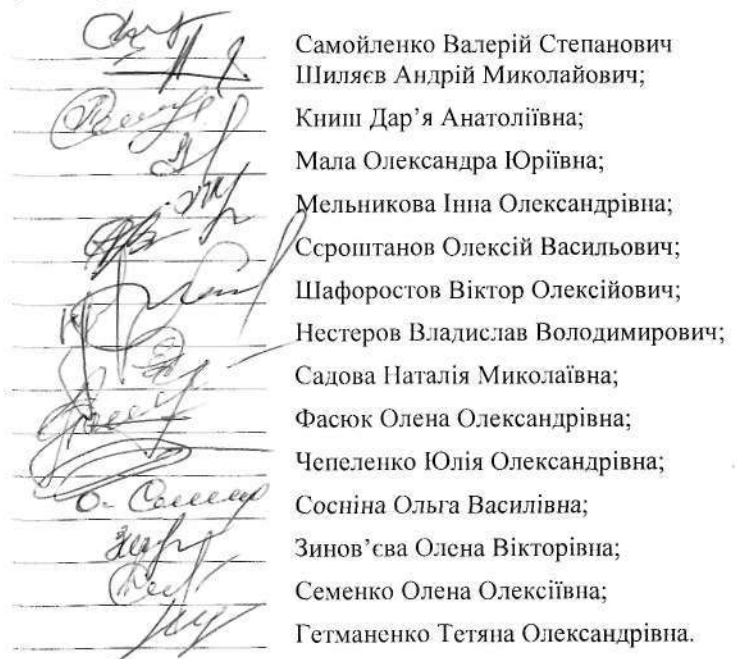 Самойленко Валерій Степанович
Шиляєв Андрій Миколайович;
Книш Дар'я Анатоліївна;
Мала Олександра Юріївна;
Мельникова Інна Олександрівна;
Сєроштанов Олексій Васильович;
Шафоростов Віктор Олексійович;
Нестеров Владислав Володимирович;
Садова Наталія Миколаївна;
Фасюк Олена Олександрівна;
Чепеленко Юлія Олександрівна;
Сосніна Ольга Василівна;
Зинов'єва Олена Вікторівна;
Семенко Олена Олексіївна;
Гетманенко Тетяна Олександрівна.